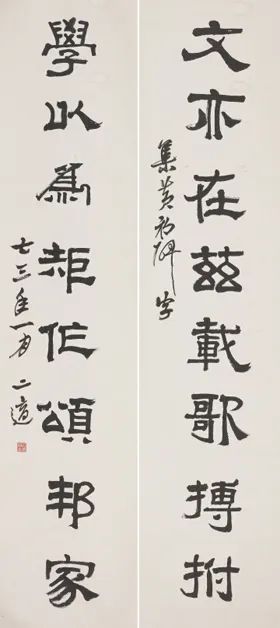 文亦在茲載歌搏拊
集黃初碑字
學以爲矩作頌邦家
七三年一月 二適